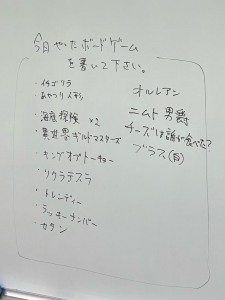 今日やったボードゲーム
を書いて下さい。
・イチゴリラ
・あやつり人形
・海底探険 ×2
・異世界ギルドマスターズ
・キングオブトーキョー
・リクラテスラ
・トレンディー
・ラッキーナンバー
・カタン
オルレアン
ニムト 男爵
チーズは誰が食べた?
ブラス(